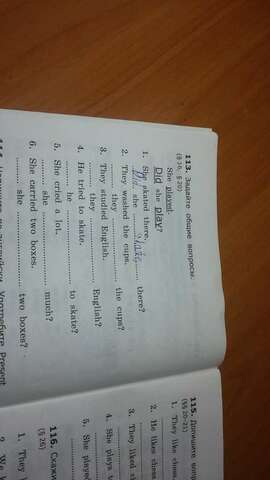 113. Задайте общие вопросы.
(§ 16, § 20)
She played.
Did she play?
1. She skated there.
Did she skate there?
2. They washed the cups.
they the cups?
3. They studied English.
they English?
4. He tried to skate.
he to skate?
5. She cried a lot.
she much?
6. She carried two boxes.
she two boxes?
115. Допишите
(§§ 20–21)
1. They like chess.
2. He likes chess.
3. They liked
4. She plays
5. She played
116.
(§ 26)
1. They
2. We